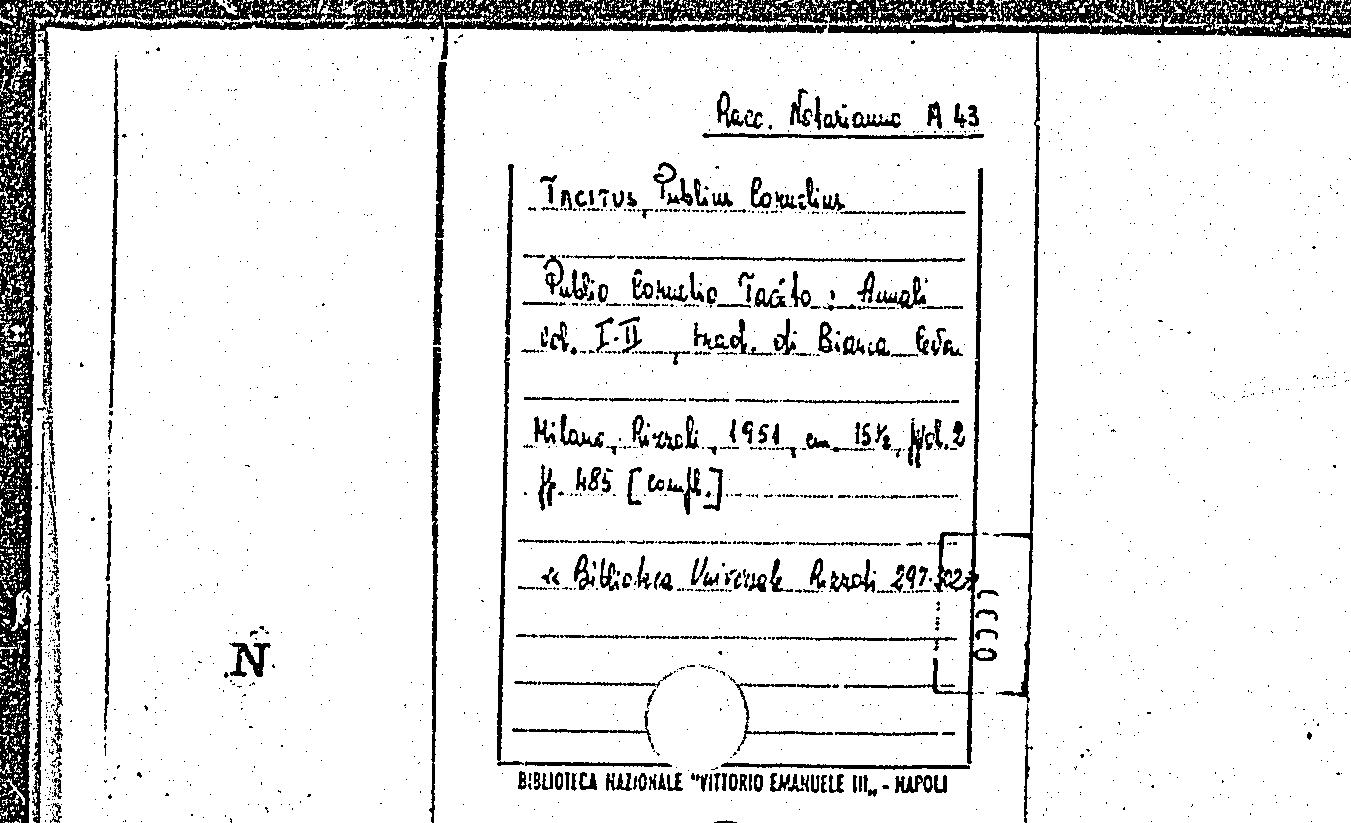 Racc. Notarianno A 43
TACITUS, Publius Cornelius
Publio Cornelio Tacito: Annali
vol. I-II, trad. di Bianca Ceva
Milano, Rizzoli, 1951, cm. 15½, vol. 2
pp. 485 [compl.]
« Biblioteca Universale Rizzoli 297-302»
N
BIBLIOTECA NAZIONALE "VITTORIO EMANUELE III„ - NAPOLI